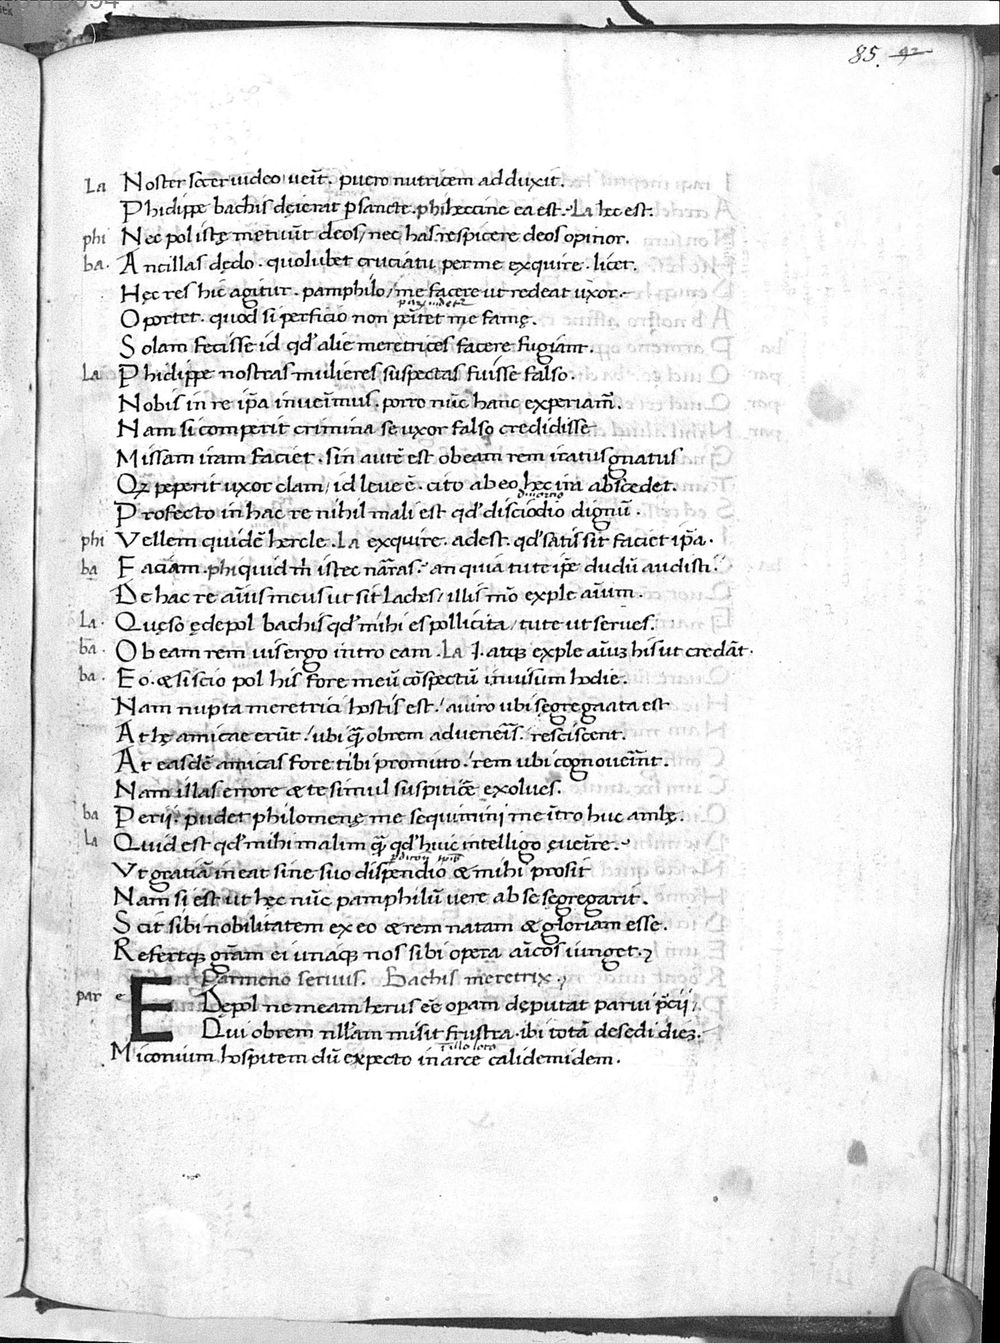 85. 92
La Noster socer video venit. puero nutricem adduxit.
Phidippe bachis deierat psancte. phi heccine ea est. La hec est.
phi Nec pol istę metuūt deos / nec has respicere deos opinor.
ba. Ancillas dędo. quolubet cruciatu per me exquire. licet.
Hęc res hic agitur. pamphilo / me facere ut redeat uxor.
Oportet. quod si perficio non pēitet me famę.
Solam fecisse id qd' alie meretrices facere fugiant.
La Phidippe nostras mulieres suspectas fuisse falso.
Nobis in re ip̄a invenimus. porro nūc hanc experiam̄.
Nam si comperit crimina se uxor falso credidisse
Missam iram faciet. sin autē est obeam rem iratus gnatus
Qz peperit uxor clam / id leve ē. cito ab eo hec ira abscedet.
divortio
Profecto in hac re nihil mali est qd' discidio dignū.
phi Vellem quidē hercle. La exquire. adest. qd' satis sit faciet ip̄a.
ba Faciam. phi quid m̄ istec narras. an quia tute ip̄e dudū audisti
De hac re aīus meus ut sit laches / illis mō exple aīum.
La. Quęso ędepol bachis qd' mihi es pollicita / tute ut serves.
ba. Ob eam rem vis ergo intro eam. La I. atqz exple aīuz his ut credāt.
ba. Eo. & si scio pol his fore meū cōspectū invisum hodie.
Nam nupta meretrici hostis est. a viro ubi segregaata est
At hę amicae erūt. ubi quā obrem adveneris. resciscent.
At easdē amicas fore tibi promitto. rem ubi cognoverint.
Nam illas errore & te simul suspitiōe exolves.
ba Perij. pudet philomenę me sequimini me ītro huc ambę.
la Quid est qd' mihi malim quā qd' huic intelligo evenire.
Vt gratiā ineat sine suo dispendio & mihi prosit
Nam si est ut hęc nūc pamphilū vere ab se segregarit.
Scit sibi nobilitatem ex eo & rem natam & gloriam esse.
Refertqz gr̄am ei unaqz nos sibi opera amicos iunget.
Parmeno servus. Bachis meretrix.
par e EDepol ne meam herus eē operam dęputat parvi p̄cij.
Qui obrem nullam misit frustra. ibi totā desedi diez.
Miconium hospitem dū expecto in arce calidemidem.